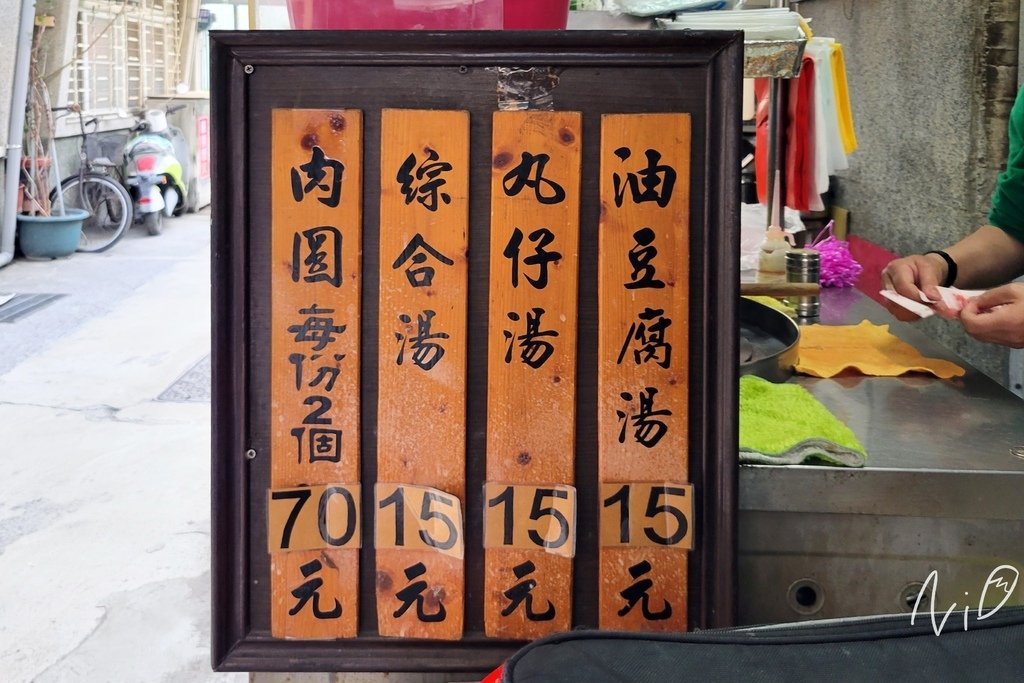 油豆腐湯15元
丸仔湯15元
綜合湯15元
肉圓每份2個70元
NiD